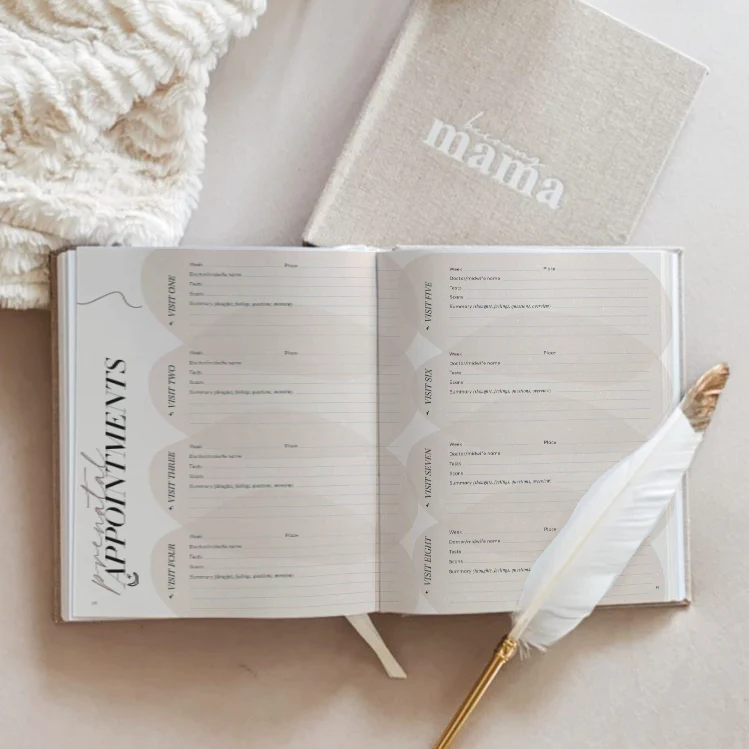 becoming
mama
prenatal
APPOINTMENTS
VISIT ONE
Week Place
Doctor/midwife name
Tests
Scans
Summary (thoughts, feelings, questions, overview)
VISIT TWO
Week Place
Doctor/midwife name
Tests
Scans
Summary (thoughts, feelings, questions, overview)
VISIT THREE
Week Place
Doctor/midwife name
Tests
Scans
Summary (thoughts, feelings, questions, overview)
VISIT FOUR
Week Place
Doctor/midwife name
Tests
Scans
Summary (thoughts, feelings, questions, overview)
VISIT FIVE
Week Place
Doctor/midwife name
Tests
Scans
Summary (thoughts, feelings, questions, overview)
VISIT SIX
Week Place
Doctor/midwife name
Tests
Scans
Summary (thoughts, feelings, questions, overview)
VISIT SEVEN
Week Place
Doctor/midwife name
Tests
Scans
Summary (thoughts, feelings, questions, overview)
VISIT EIGHT
Week Place
Doctor/midwife name
Tests
Scans
Summary (thoughts, feelings, questions,